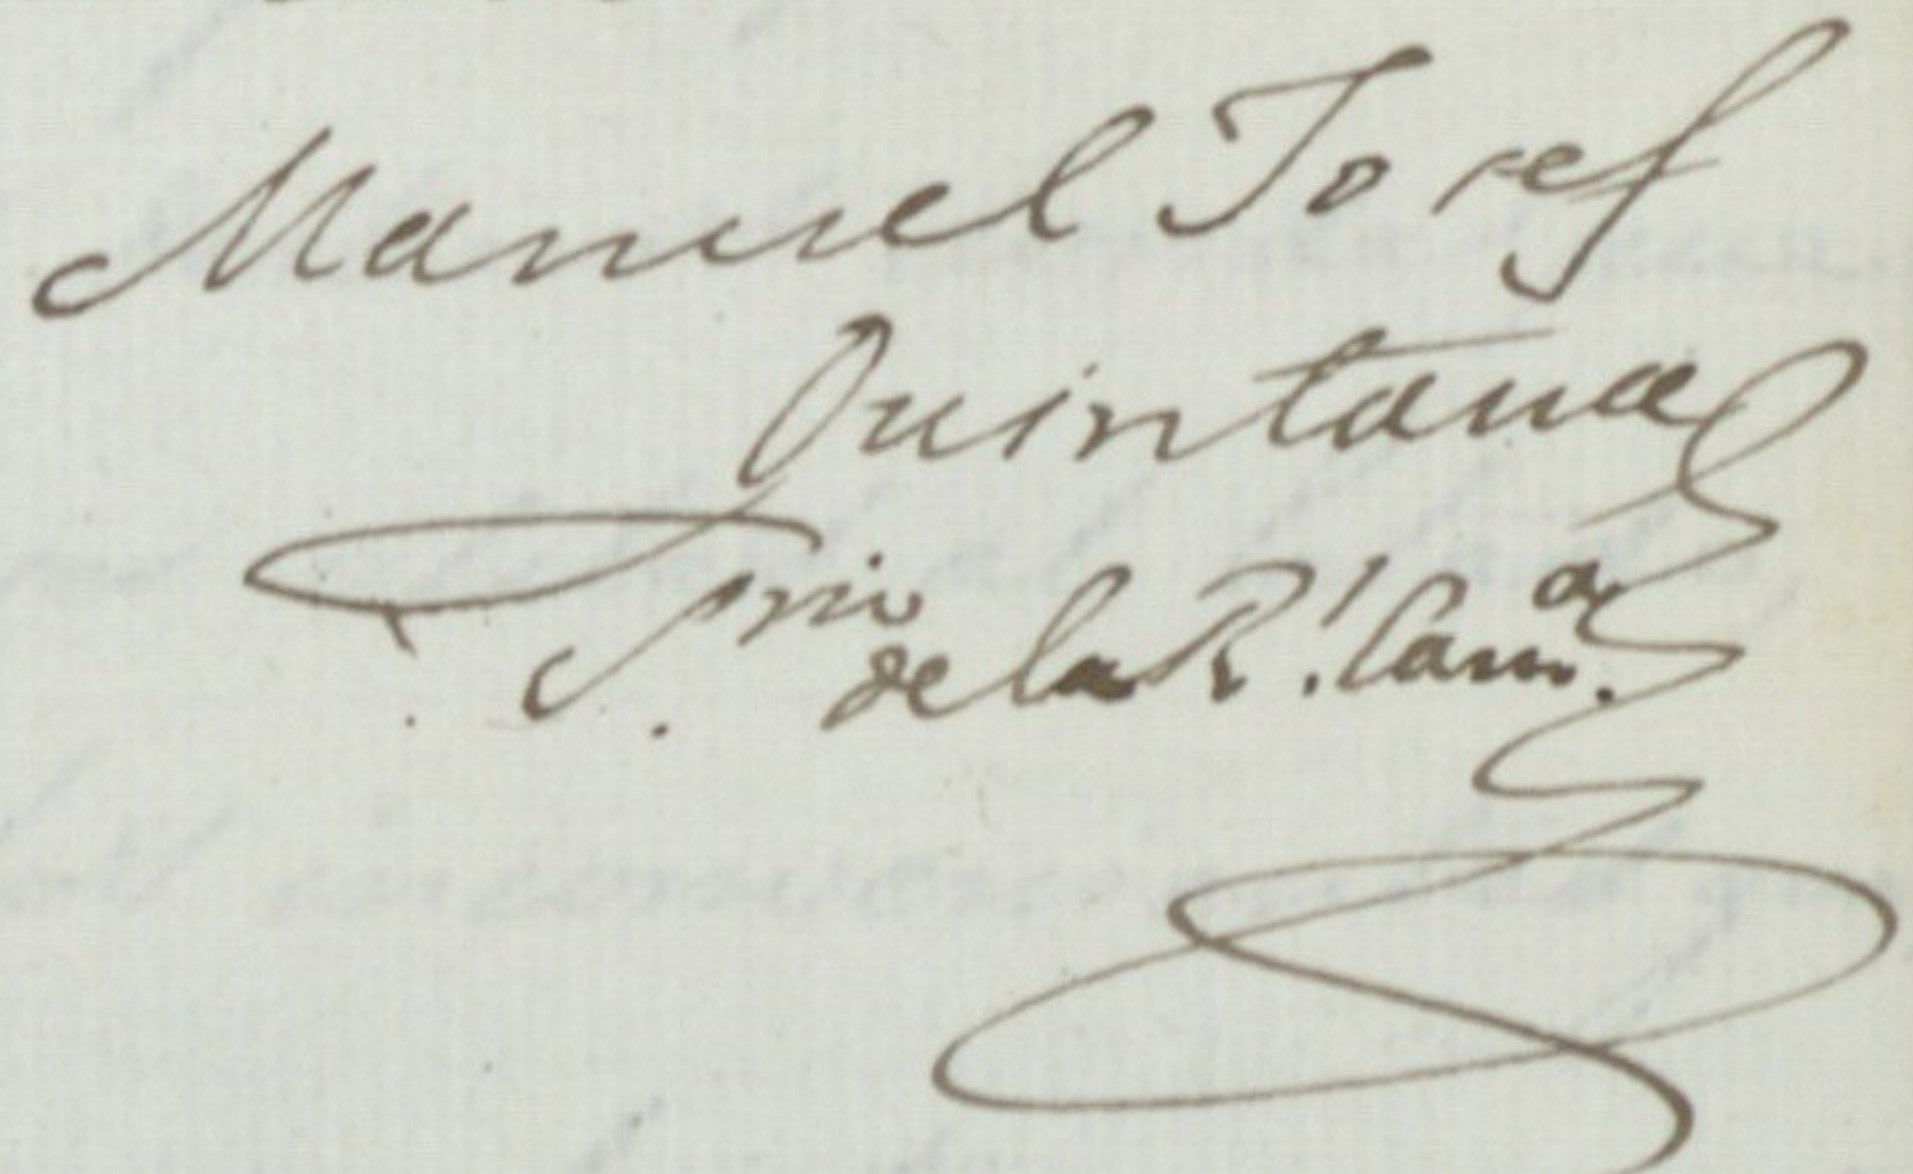 Manuel Josef
Quintana
S.rio
de la R.l Cam.a